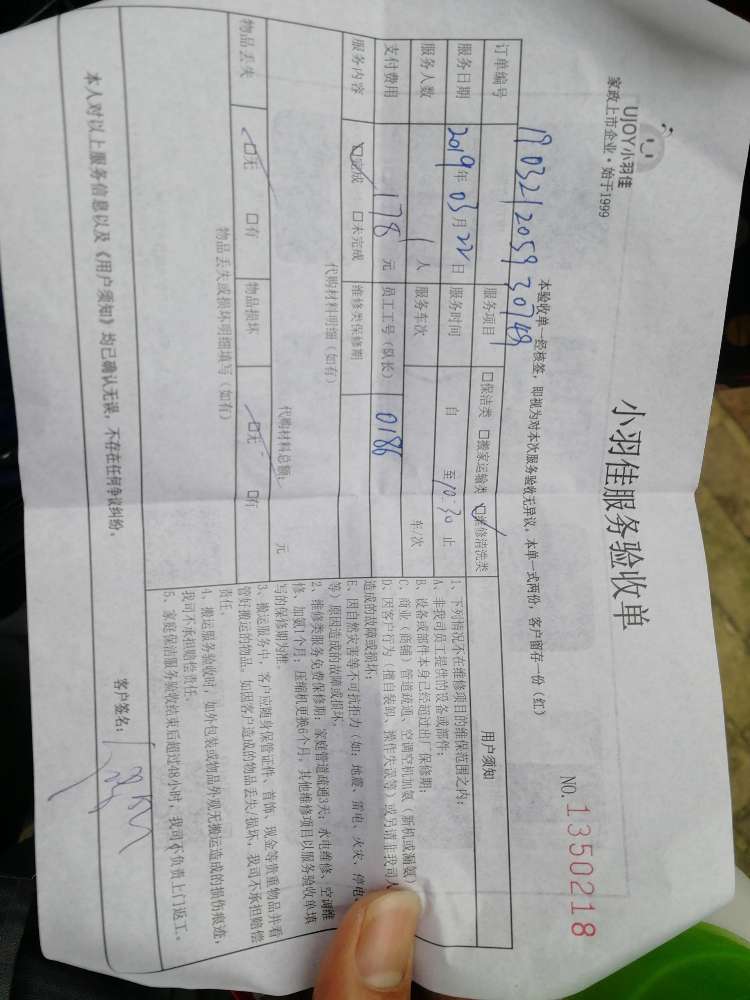 UJOY小羽佳
家政上市企业·始于1999
小羽佳服务验收单
NO.1350218
本验收单一经核签，即视为对本次服务验收无异议，本单一式两份，客户留存一份（红）
订单编号 190321205930749 服务项目 □保洁类 □搬家运输类 □维修清洗类
服务日期 2019年03月22日 服务时间 自 至10:30止
服务人数 1人 服务车次 车/次
支付费用 178元 员工工号（队长） 0186
服务内容 □完成 □未完成 维修类保修期
代购材料明细（如有）
代购材料总额： 元
物品丢失 □无 □有 物品损坏 □无 □有
物品丢失或损坏明细填写（如有）
用户须知
1、下列情况不在维修项目的维保范围之内：
A、非我司员工提供的设备或部件；
B、设备或部件本身已经超过出厂保修期；
C、商业（商铺）管道疏通、空调空机加氨（新机或漏氨）
D、因客户行为（擅自装卸、操作失误等）或另请非我司人
造成的故障或损坏；
E、因自然灾害等不可抗拒力（如：地震、雷电、火灾、停电、
等）原因造成的故障或损坏。
2、维修类服务免费保修期：家庭管道疏通3天；水电维修、空调维
修、加氨1个月；压缩机更换6个月，其他维修项目以服务验收单填
写的保修期为准。
3、搬运服务中，客户应随身保管证件、首饰、现金等贵重物品并看
管好搬运的物品。如因客户造成的物品丢失/损坏，我司不承担赔偿
责任。
4、搬运服务验收时，如外包装或物品外观无搬运造成的损伤痕迹，
我司不承担赔偿责任。
5、家庭保洁服务验收结束后超过48小时，我司不负责上门返工。
本人对以上服务信息以及《用户须知》均已确认无误，不存在任何争议纠纷。
客户签名：